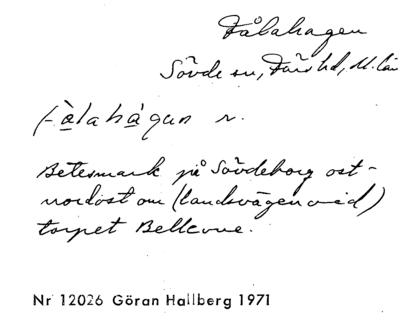 Fålahagen
Sövde sn, Färs hd, M. län
f-àlahágan n.
Betesmark på Sövdeborg ost-
nordost om (landsvägen vid)
torpet Bellevue.
Nr 12026 Göran Hallberg 1971